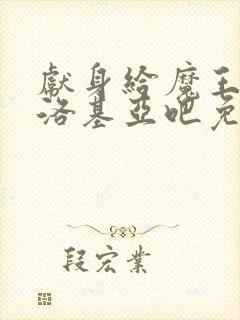 獻身給魔王
洛基亞吧免
段宏業